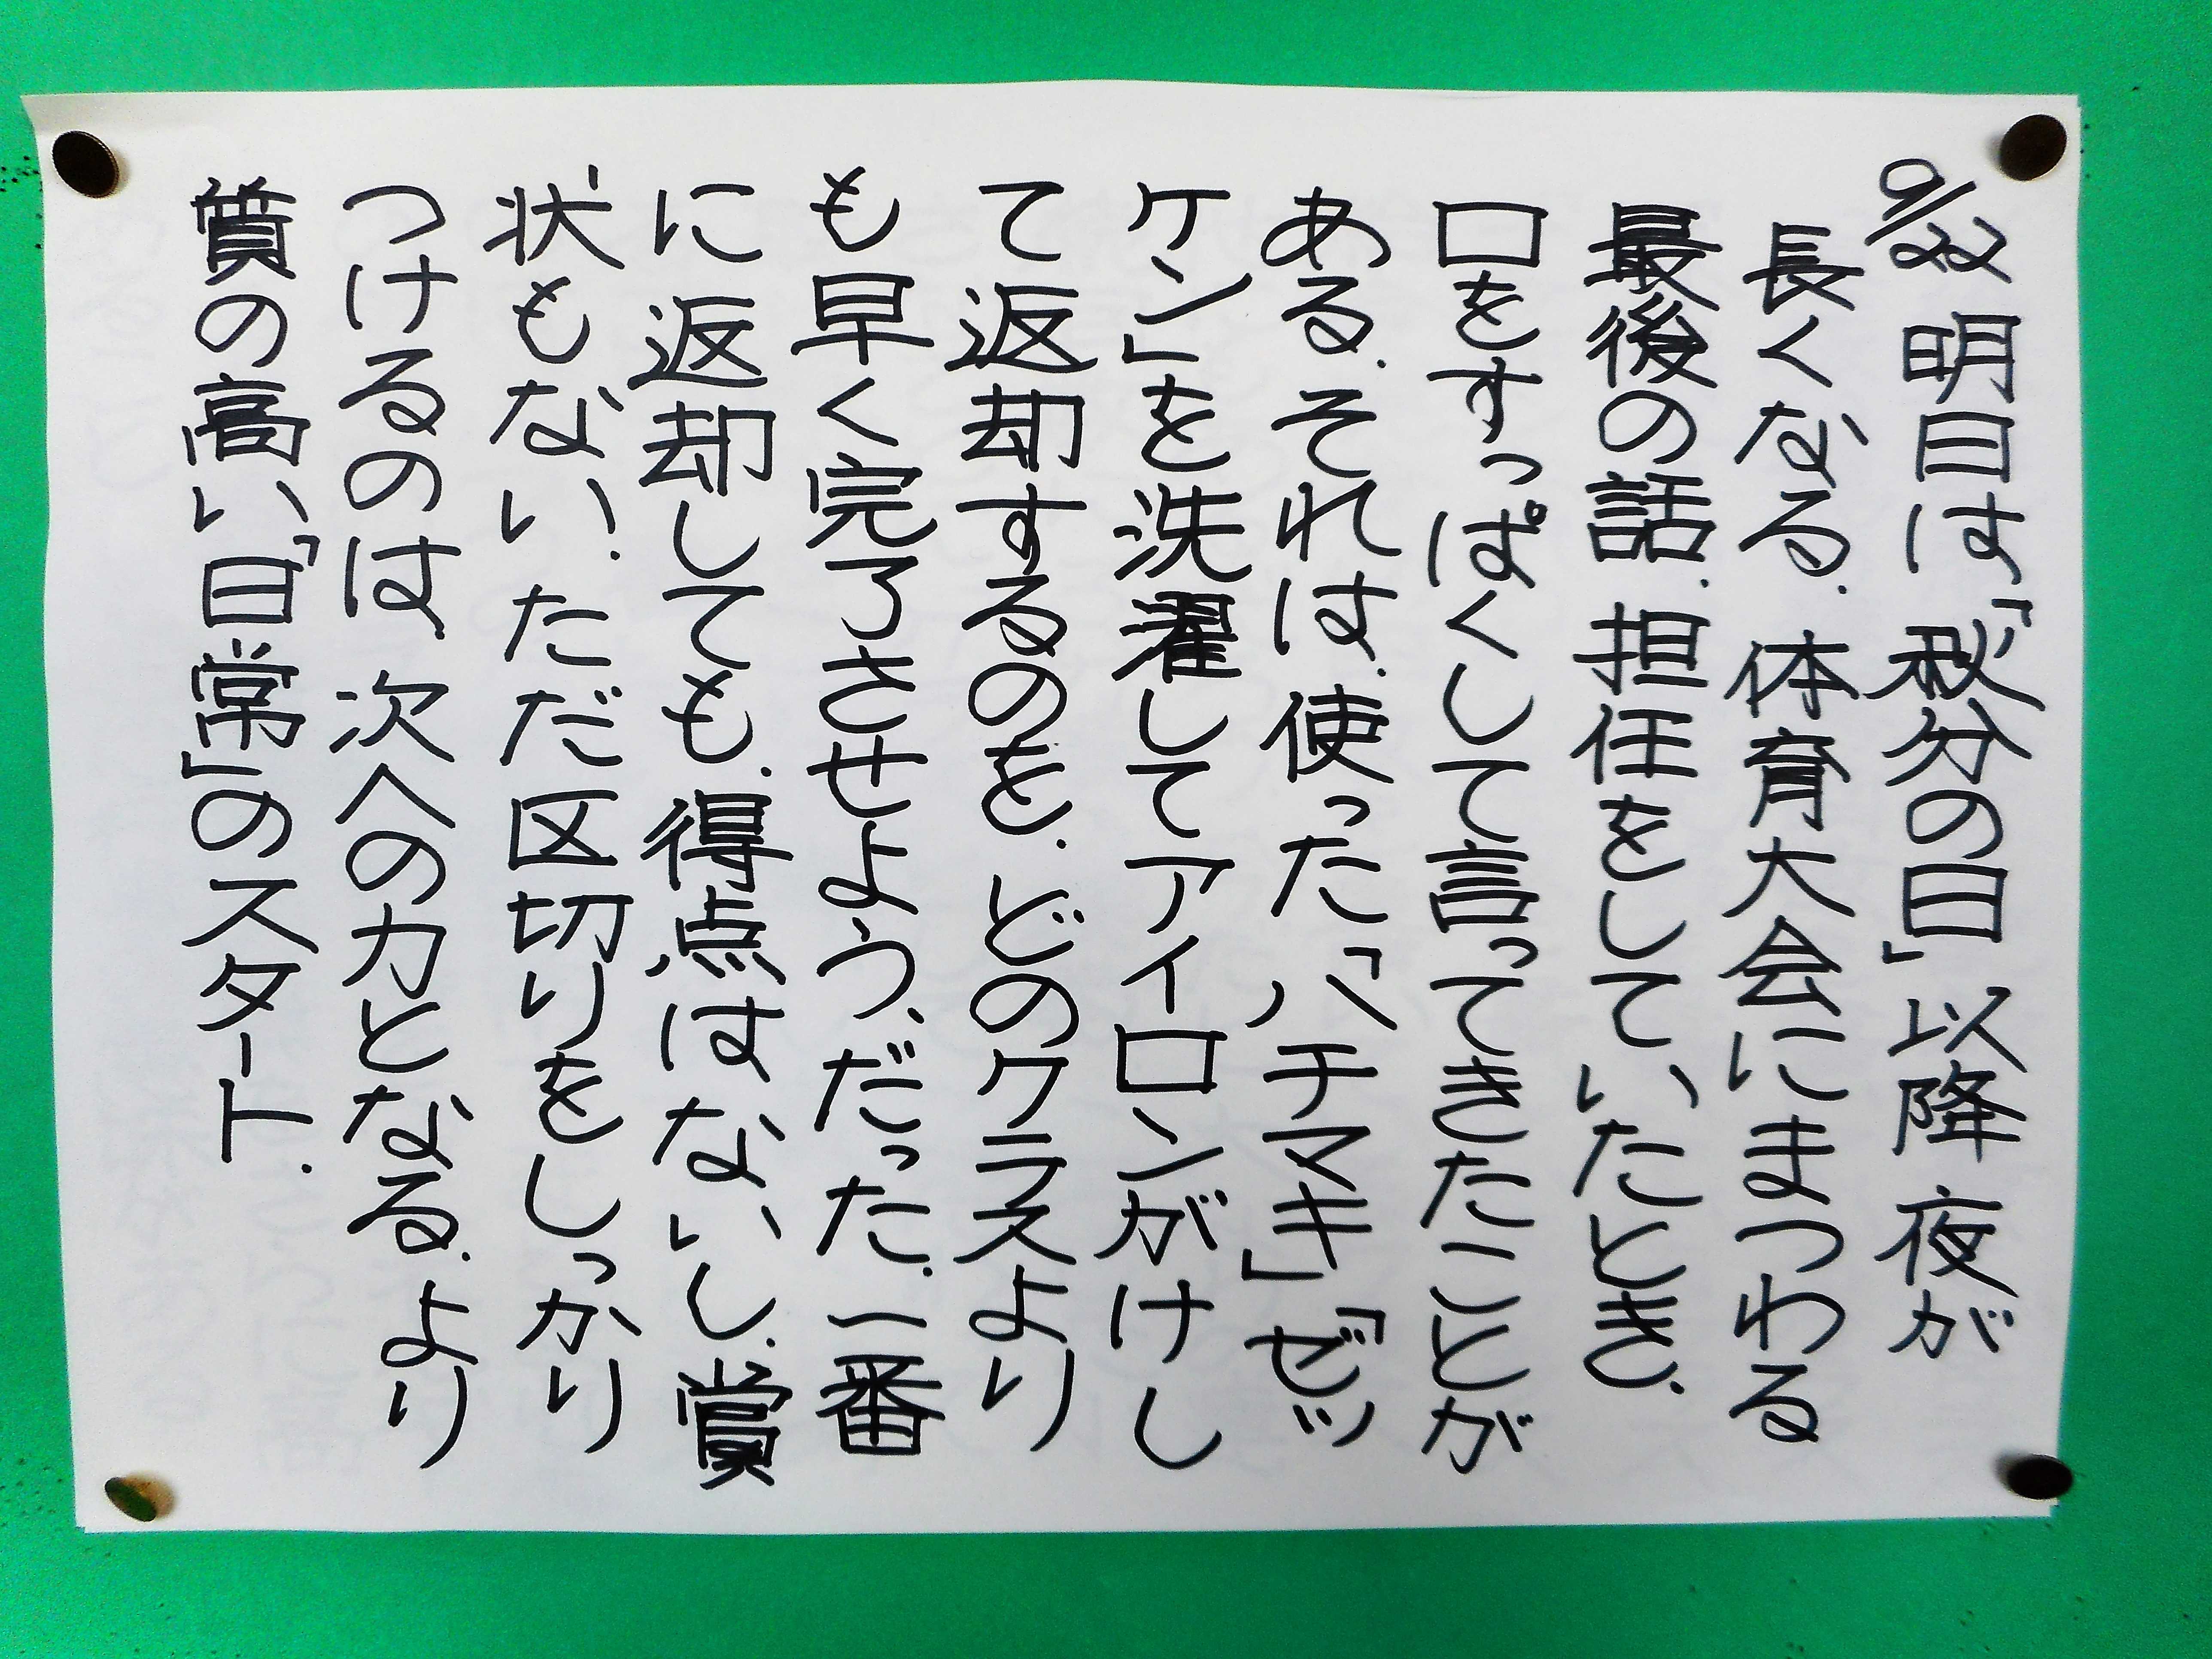 9/22 明日は「秋分の日」以降 夜が
長くなる. 体育大会にまつわる
最後の話. 担任をしていたとき.
口をすっぱくして言ってきたことが
ある. それは. 使った「ハチマキ」「ゼッ
ケン」を洗濯してアイロンがけし
て返却するのを. どのクラスより
も早く完了させよう、だった. 一番
に返却しても. 得点はないし. 賞
状もない. ただ区切りをしっかり
つけるのは. 次への力となる. より
質の高い「日常」のスタート.